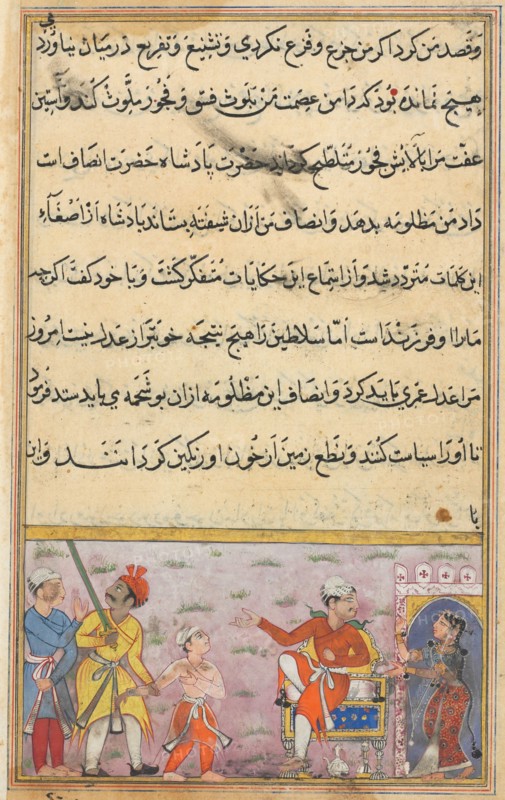 وقصد من کرد اکر من جزع و فزع نکردی و تشنیع و تفریع درمیان نیاوردی
هیچ نمانده بود که دامن عصمت من بلوث فسق و فجور ملوث کند و آستین
عفت مرا بآلایش فجور متلطخ کرداند حضرت پادشاه حضرت انصاف است
داد من مظلومه بدهد و انصاف من ازان شیفته بستاند پادشاه از اصغاء
این کلمات متردد شد و از استماع این حکایات متفکر کشت و با خود کفت اکرچه
مارا او فرزند است اما سلاطین را هیچ نتیجه خوبتر از عدل نیست امروز
مرا عدل عمری باید کرد و انصاف این مظلومه ازان بوشحمه می باید ستد فرمود
تا اورا سیاست کنند و نطع زمین از خون او رنکین کردانند و این
با